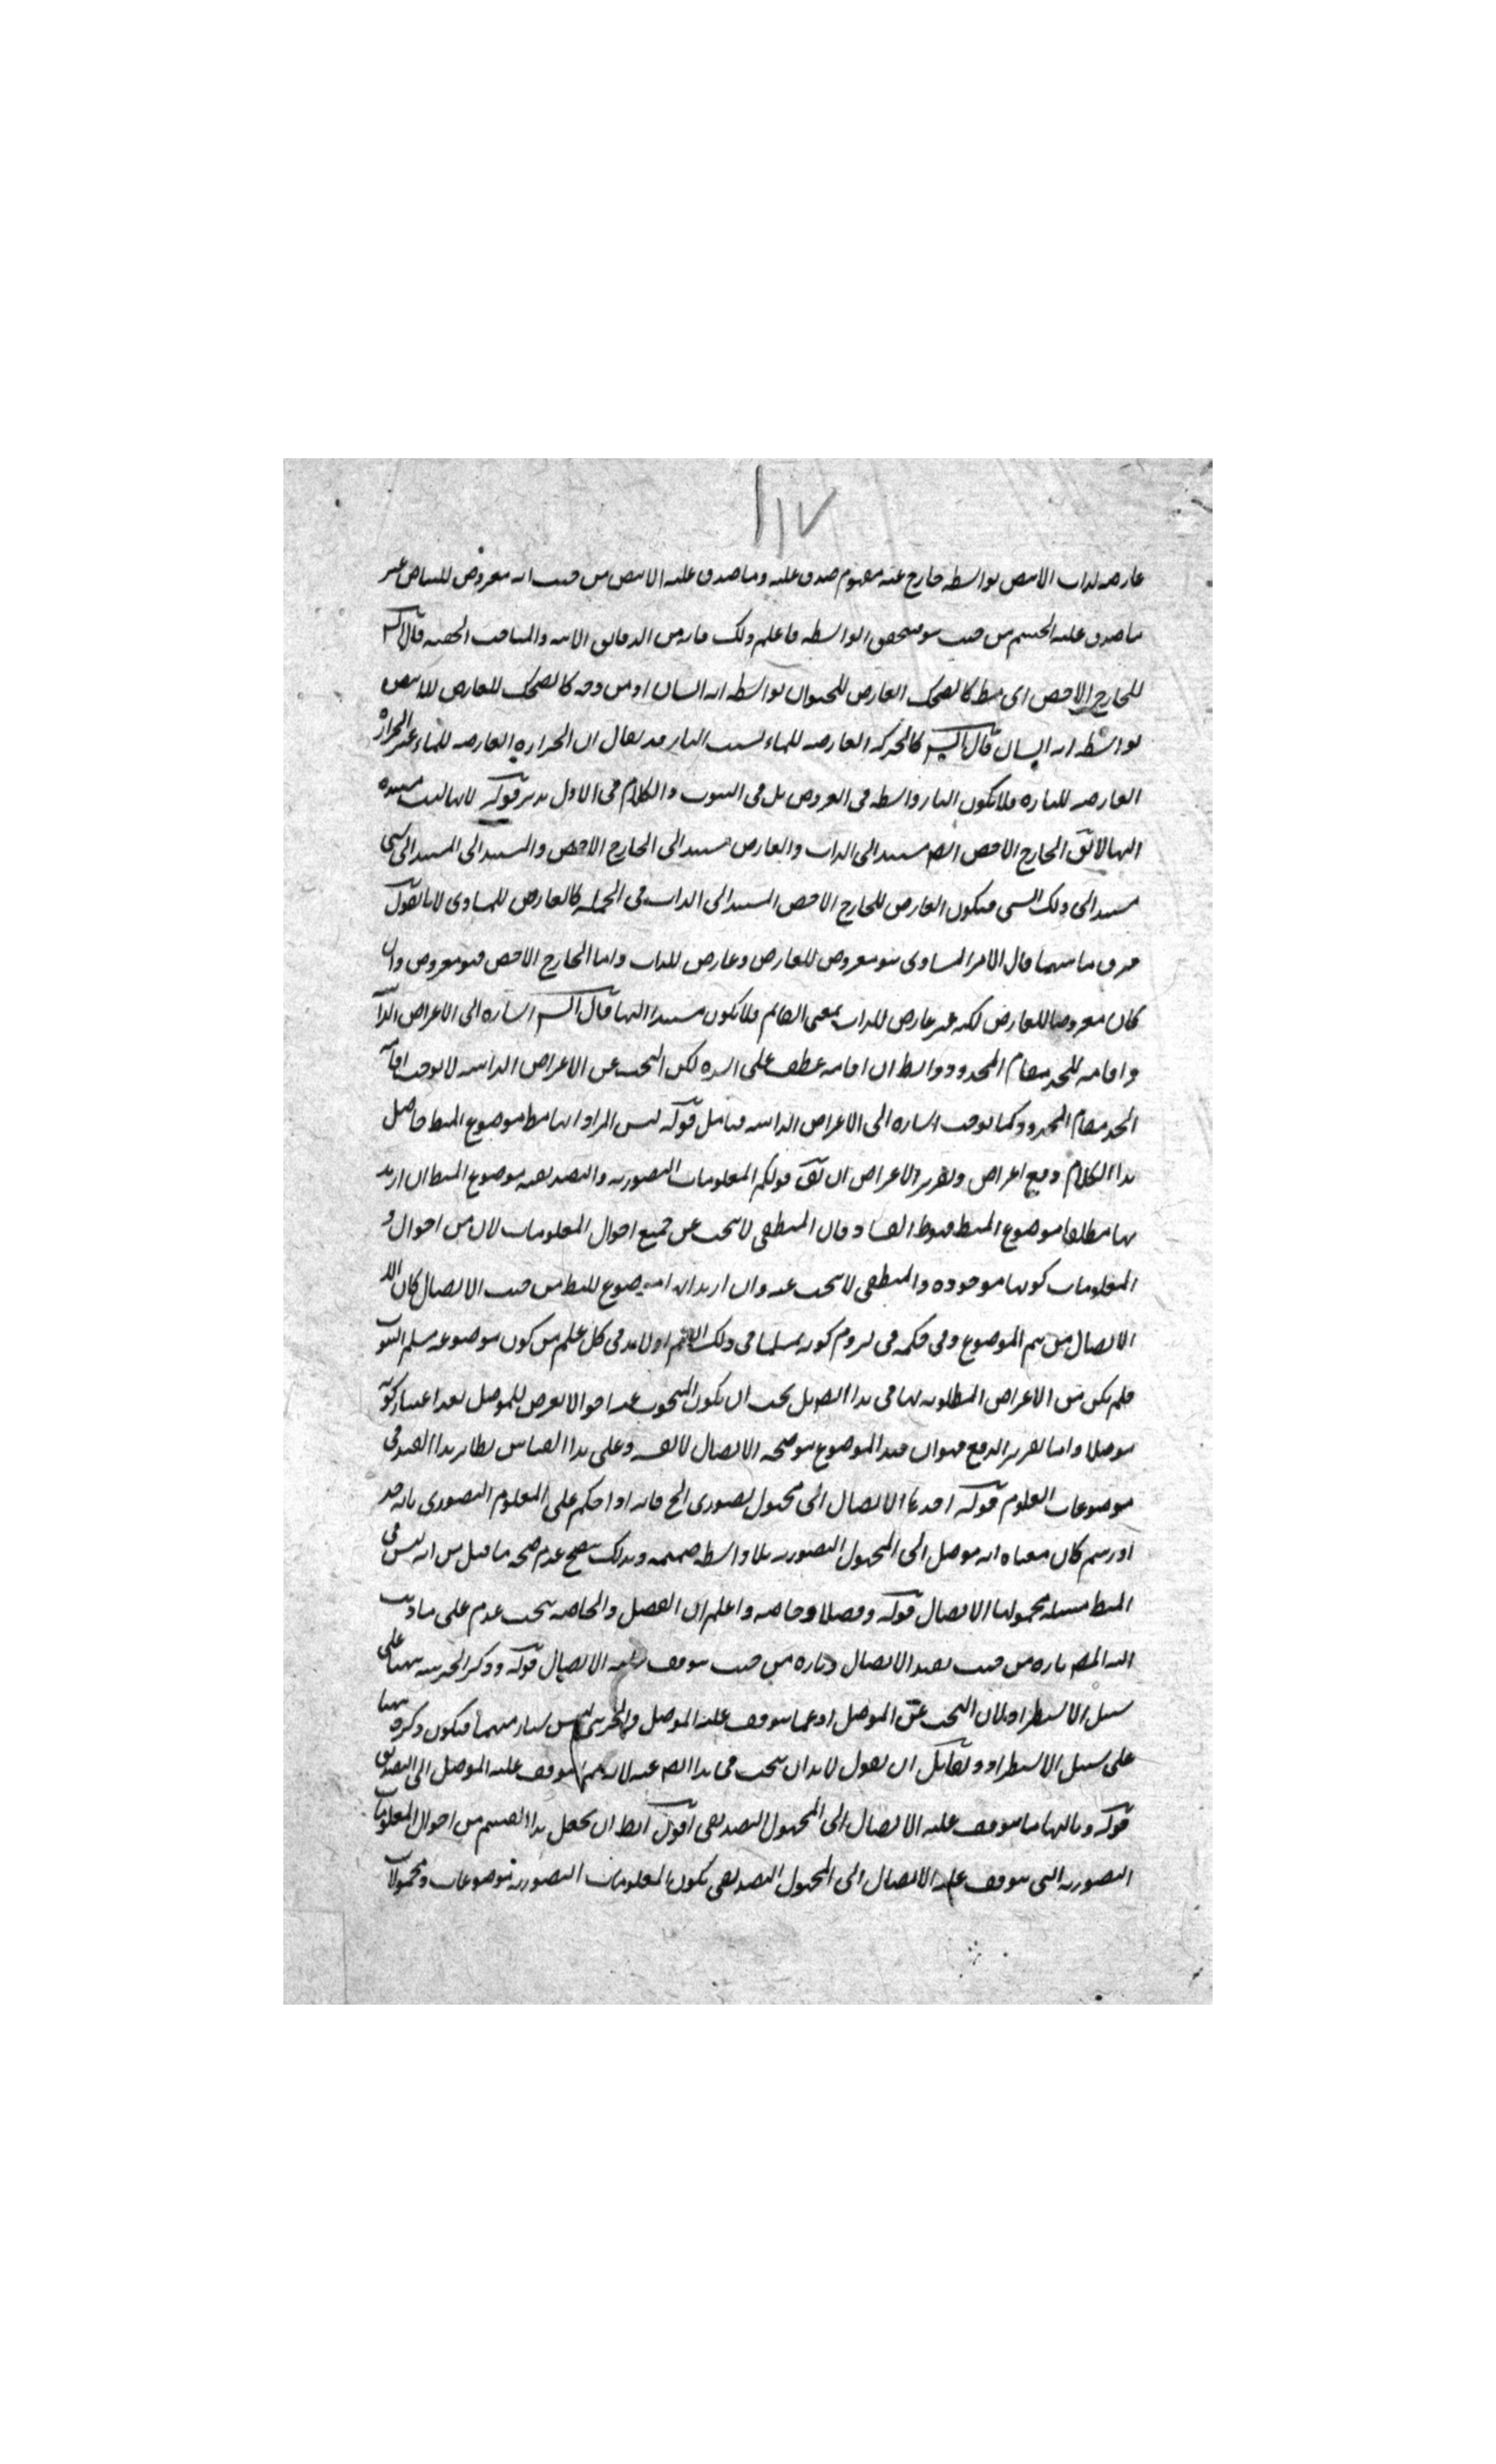 ١١٧
عارضه لذات الابيض بواسطه خارج عنه مفهوم صدق عليه وما صدق عليه الابيض من حيث انه معروض للبياض غير
ما صدق عليه الجسم من حيث هو فيتحقق الواسطه فاعلم ذلك فانه من الدقايق الاتيه والمباحث الخفيه قال الش
للخارج الاخص اى مط كالضحك العارض للحيوان بواسطه انه انسان او من وجه كالضحك العارض للابيض
بواسطه انه انسان قال الش كالحركه العارضه للماء بسبب النار قد يقال ان الحراره العارضه للماء غير الحراره
العارضه للنار فلا يكون النار واسطه في العروض بل في الثبوت والكلام في الاول تدبر قوله لانها ليست مستنده
اليها لا يق الخارج الاخص ايض مستند الى الذات والعارض مستند الى الخارج الاخص والمستند الى المستند الى شى
مستند الى ذلك الشى فيكون العارض للخارج الاخص المستند الى الذات في الجمله كالعارض للمساوى لانا نقول
فرق ما بينهما فان الامر المساوى هو معروض للعارض وعارض للذات واما الخارج الاخص فهو معروض وان
كان معروضا للعارض لكنه غير عارض للذات بمعنى القائم فلا يكون مستندا اليها قال الش اشاره الى الاعراض الذا
و اقامه للحد مقام المحدود والظ ان اقامه عطف على اشاره لكن البحث عن الاعراض الذاتيه لا يوجب اقامه
الحد مقام المحدود كما يوجب اشاره الى الاعراض الذاتيه فتامل قوله ليس المراد انها مط موضوع المنط حاصل
هذا الكلام دفع اعراض وتقرير الاعراض ان يق قولكم المعلومات التصوريه والتصديقيه موضوع المنط ان اريد
بها مطلقا موضوع المنط فهو ظ الفساد فان المنطقى لا يبحث عن جميع احوال المعلومات لان من احوال
المعلومات كونها موجوده والمنطقى لا يبحث عنه وان اريد انه موضوع للمنط من حيث الايصال كان
الايصال من تتمه الموضوع وفي حكمه في لزوم كونه مسلما في ذلك العلم اذ لا بد في كل علم من كون موضوعه مسلم الثبوت
فلم يكن من الاعراض المطلوبه لها في هذا الفن بل يجب ان يكون المبحوث عنه احوالا يعرض للموصل بعد اعتبار كونه
موصلا واما تقرير الدفع فهو ان قيد الموضوع هو صحه الايصال لا نفسه وعلى هذا القياس نظاير هذا القيد في
موضوعات العلوم قوله احدها الايصال الى مجهول تصورى الخ فانه اذا حكم على المعلوم التصورى بانه حد
او رسم كان معناه انه موصل الى المجهول التصورى بلا واسطه ضميمه وبذلك يتضح عدم صحه ما قيل من انه ليس في
المنط مسئله محمولها الايصال قوله وفصلا وخاصه واعلم ان الفصل والخاصه يبحث عنهم على ما ذهب
اليه المص تاره من حيث يفيد الايصال وتاره من حيث يتوقف عليه الايصال قوله وذكر الجزئيه ههنا على
سبيل الاستطراد لان البحث عن الموصل او عما يتوقف عليه الموصل والجزئى ليس بشى منهما فيكون ذكره ههنا
على سبيل الاستطراد ولقائل ان يقول لا بد ان يبحث في هذا الفن عنه لانه مما يتوقف عليه الموصل الى التصديق
قوله وثالثها ما يتوقف عليه الايصال الى المجهول التصديقى اقول الظ ان يجعل هذا القسم من احوال المعلومات
التصوريه التى يتوقف عليه الايصال الى المجهول التصديقى ككون المعلومات التصوريه موضوعات ومحمولات